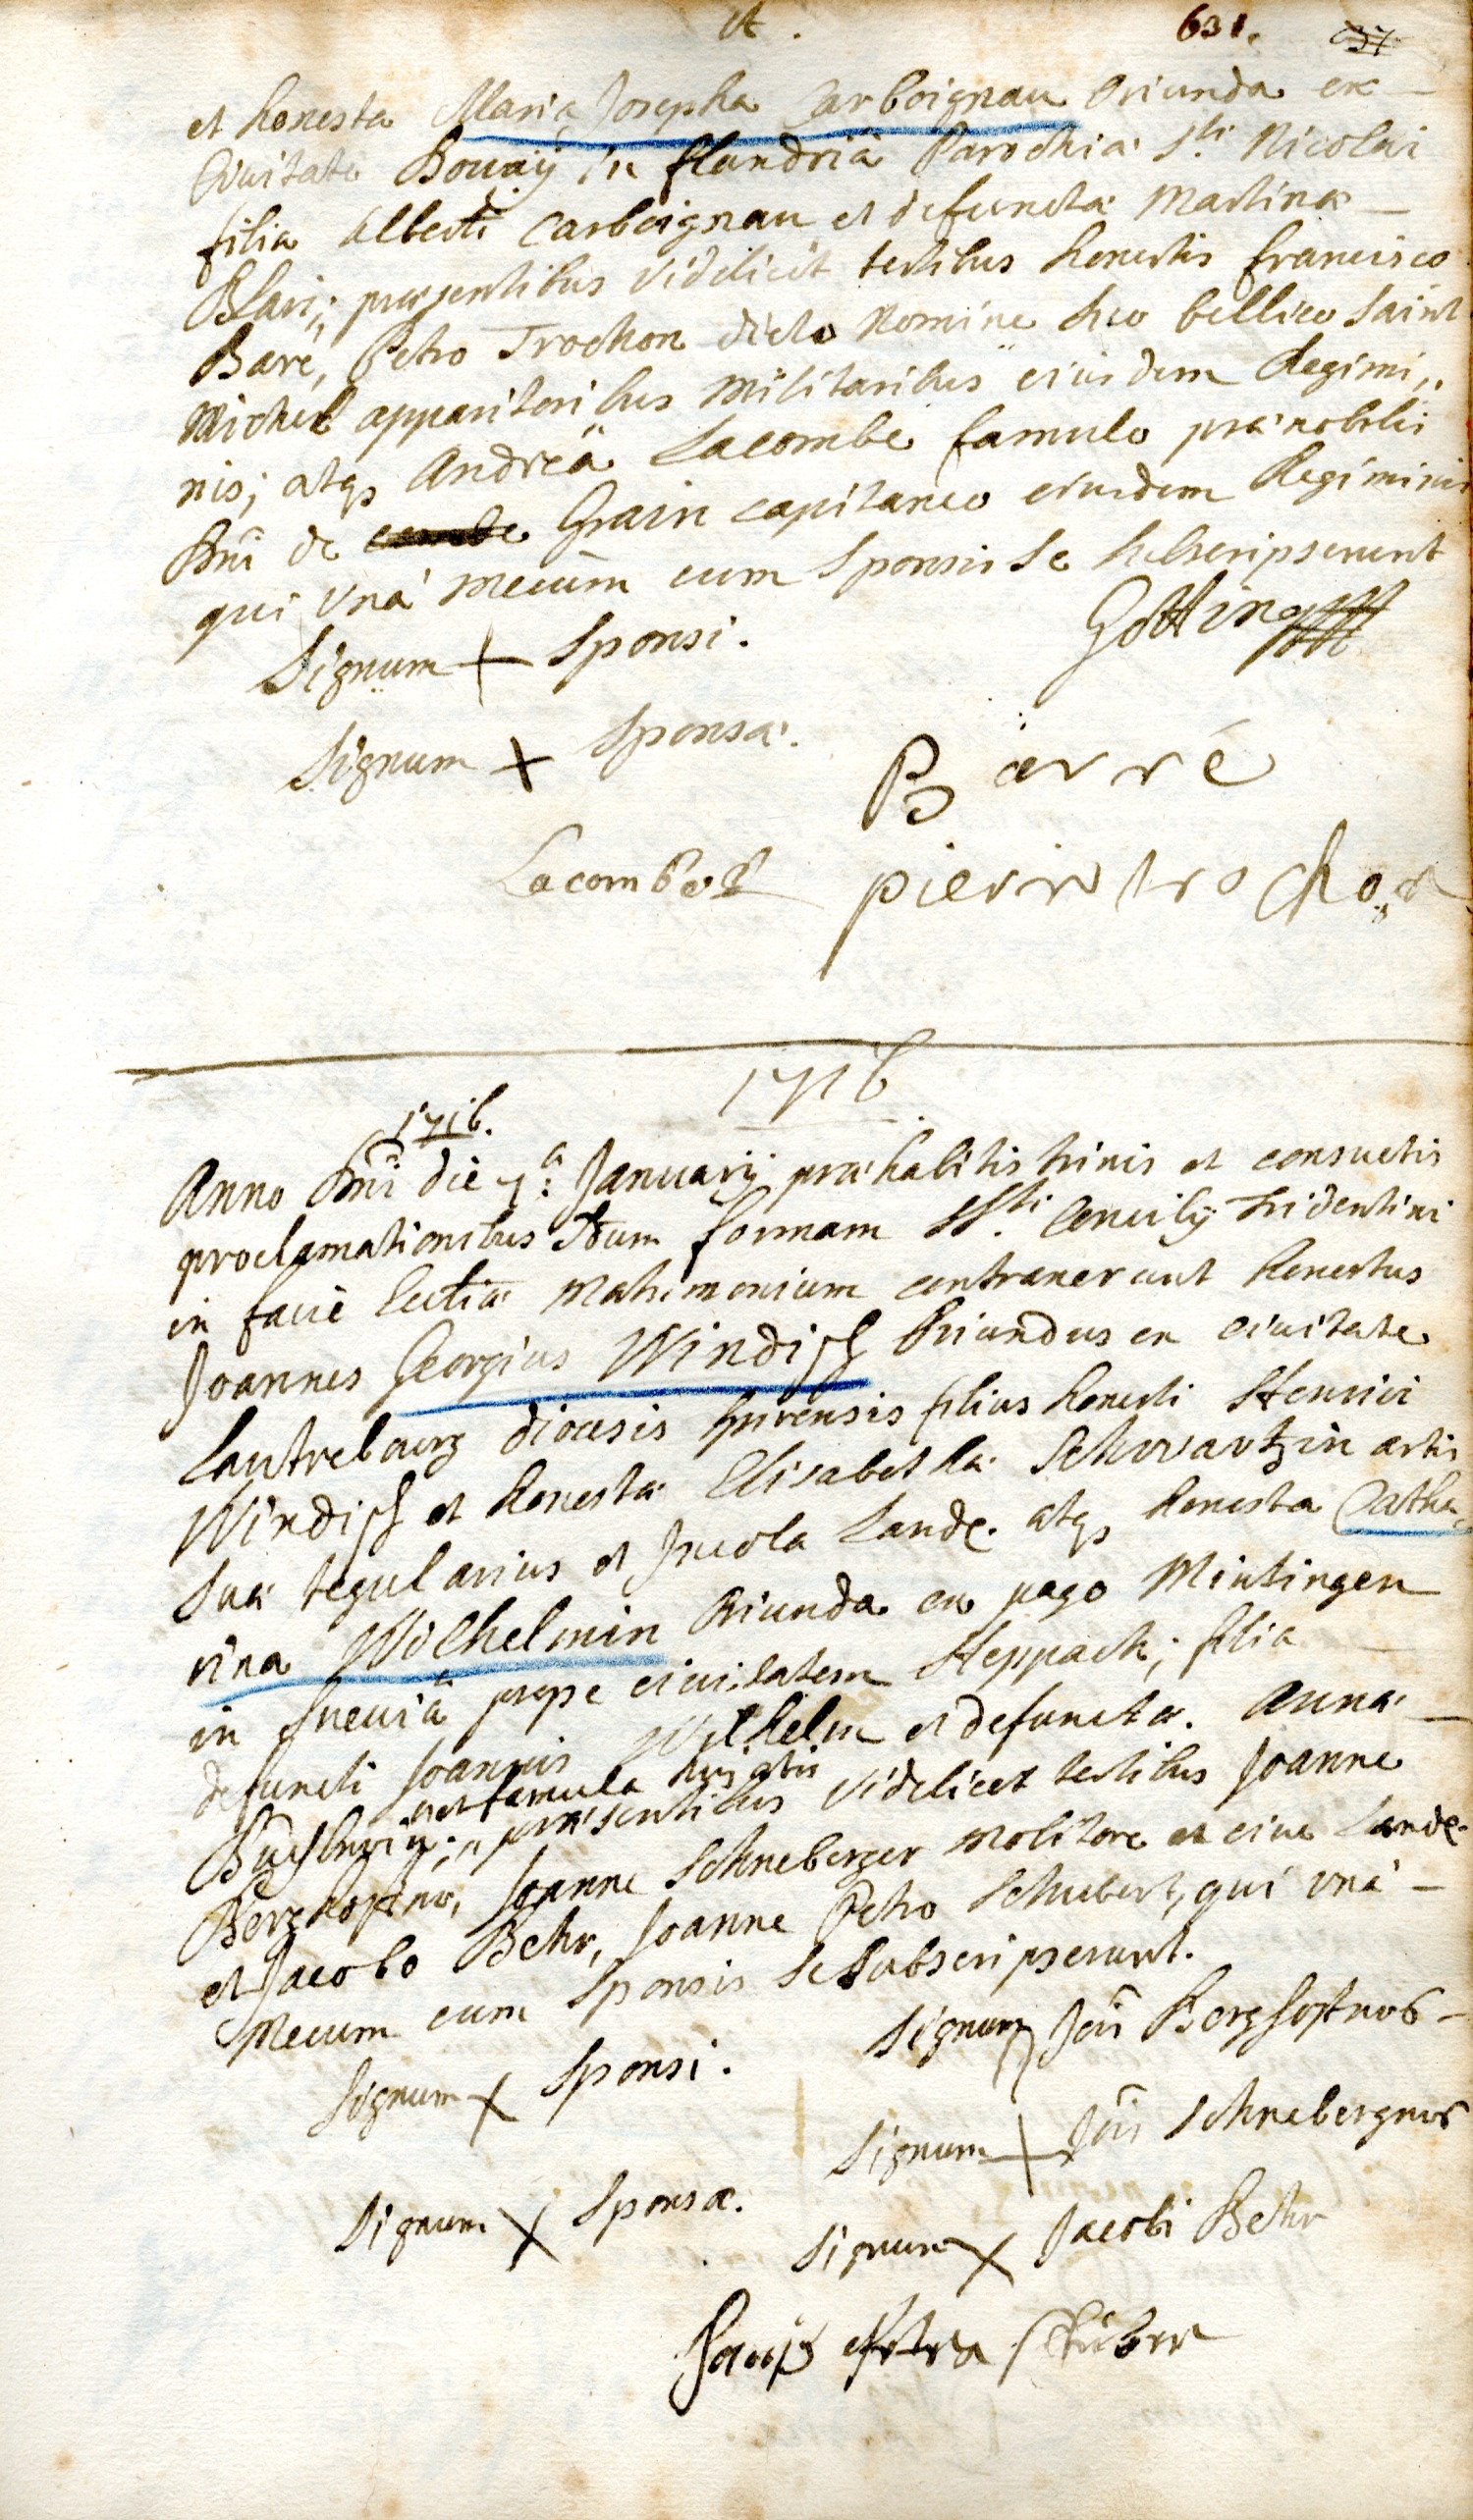 et. 631. 637
et honesta Maria Josepha Carboignau Oriunda ex
Civitate Douaÿ in flandriâ Parochiæ Sti Nicolai
filia Alberti Carboignau et defunctæ Martinæ
Blari; præsentibus videlicet testibus honestis francisco
Baré, Petro Trochon dicto Nomine suo bellico Saint
Michel apparitoribus Militaribus eiusdem Regimi„
nis; atqs Andreâ Lacombe famulo prænobilis
Dni de Grain capitaneo eiusdem Regiminis
qui vnà mecum cum Sponsis Se subscripserunt
Signum + Sponsi. Gotting
Signum + Sponsæ. Barré
Lacombe pierre trochon
1716
1716.
Anno Dni die 7a Januarij præhabitis trinis et consuetis
proclamationibus Stum formam SSti Concilÿ Tridentini
in facie Ecctiæ Matrimonium contraxerunt honestus
Joannes Georgius Windisch Oriundus ex civitate
Lautrebourg diœcesis Spirensis filius honesti Henrici
Windisch et honestæ Elisabethæ Schwartzin artis
suæ tegularius et Incola Landæ. atqs honesta Catha„
rina Wilhelmin Oriunda ex pago Mintingen
in Sueviâ prope civitatem Heppach; filia
defuncti Joannis Wilhelm et defunctæ. Annæ
famula huiatis
præsentibus videlicet testibus Joanne
Berghoffner, Joanne Schneberger Molitore et cive Landæ.
et Jacobo Behr, Joanne Petro Schubert, qui vnà
Mecum cum Sponsis Se Subscripserunt.
Signum Jois Berghoffner
Signum + Sponsi.
Signum + Jois Schneberguer
Signum + Sponsæ.
Signum + Jacobi Behr